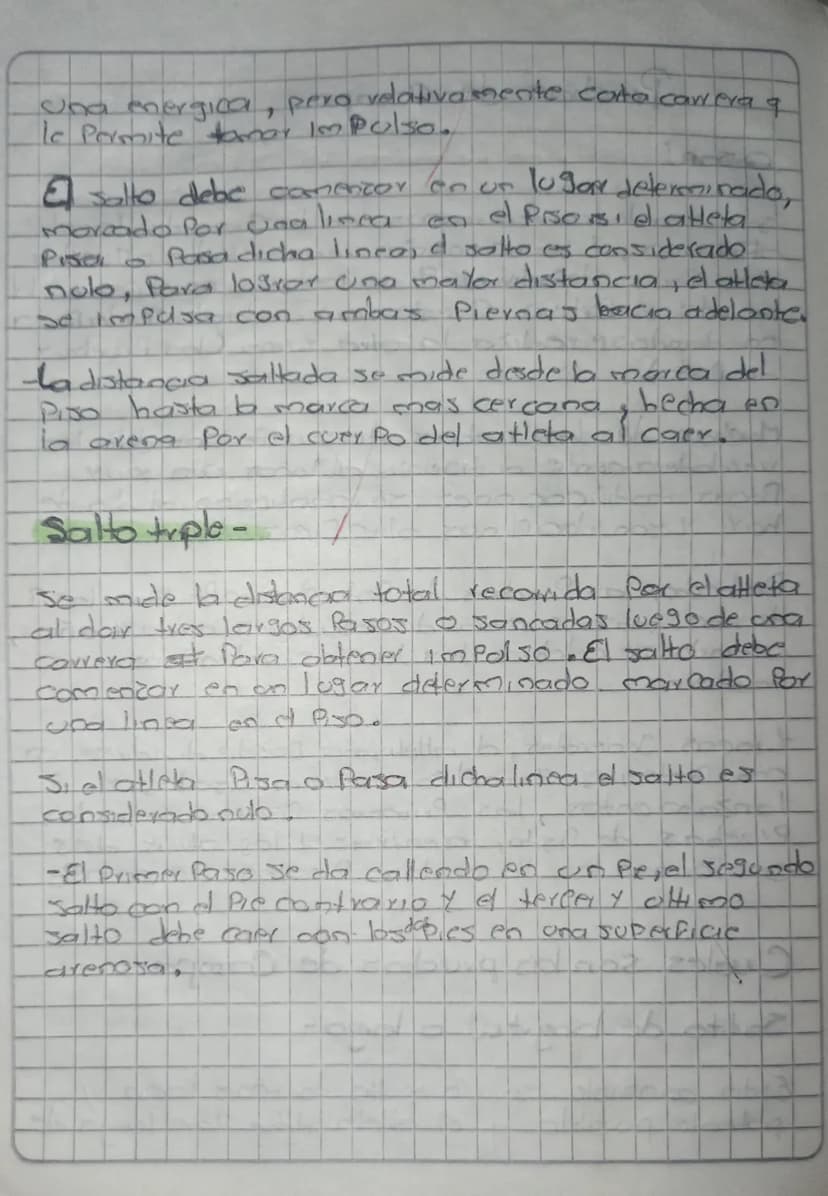 una energica, pero relativamente corta carrera q
le Permite tomar impulso.
El salto debe comenzar en un lugar determinado,
marcado Por una linea en el Piso si el atleta
Pisa o Pasa dicha linea, el salto es considerado
nulo, Para lograr una mayor distancia, el atleta
se impulsa con ambas Piernas hacia adelante.
-La distancia saltada se mide desde la marca del
Piso hasta la marca mas cercana, hecha en
la arena Por el cuerpo del atleta al caer.
Salto triple-
se mide la distancia total recorrida Por el atleta
al dar tres largos Pasos o sancadas luego de una
carrera Para obtener impulso. El salto debe
comenzar en un lugar determinado marcado Por
una linea en el Piso.
Si el atleta Pisa o Pasa dicha linea el salto es
considerado nulo.
-El Primer Paso se da callendo en un Pie, el segundo
salto con el Pie contrario y el tercer y ultimo
salto debe caer con los pies en una superficie
arenosa.